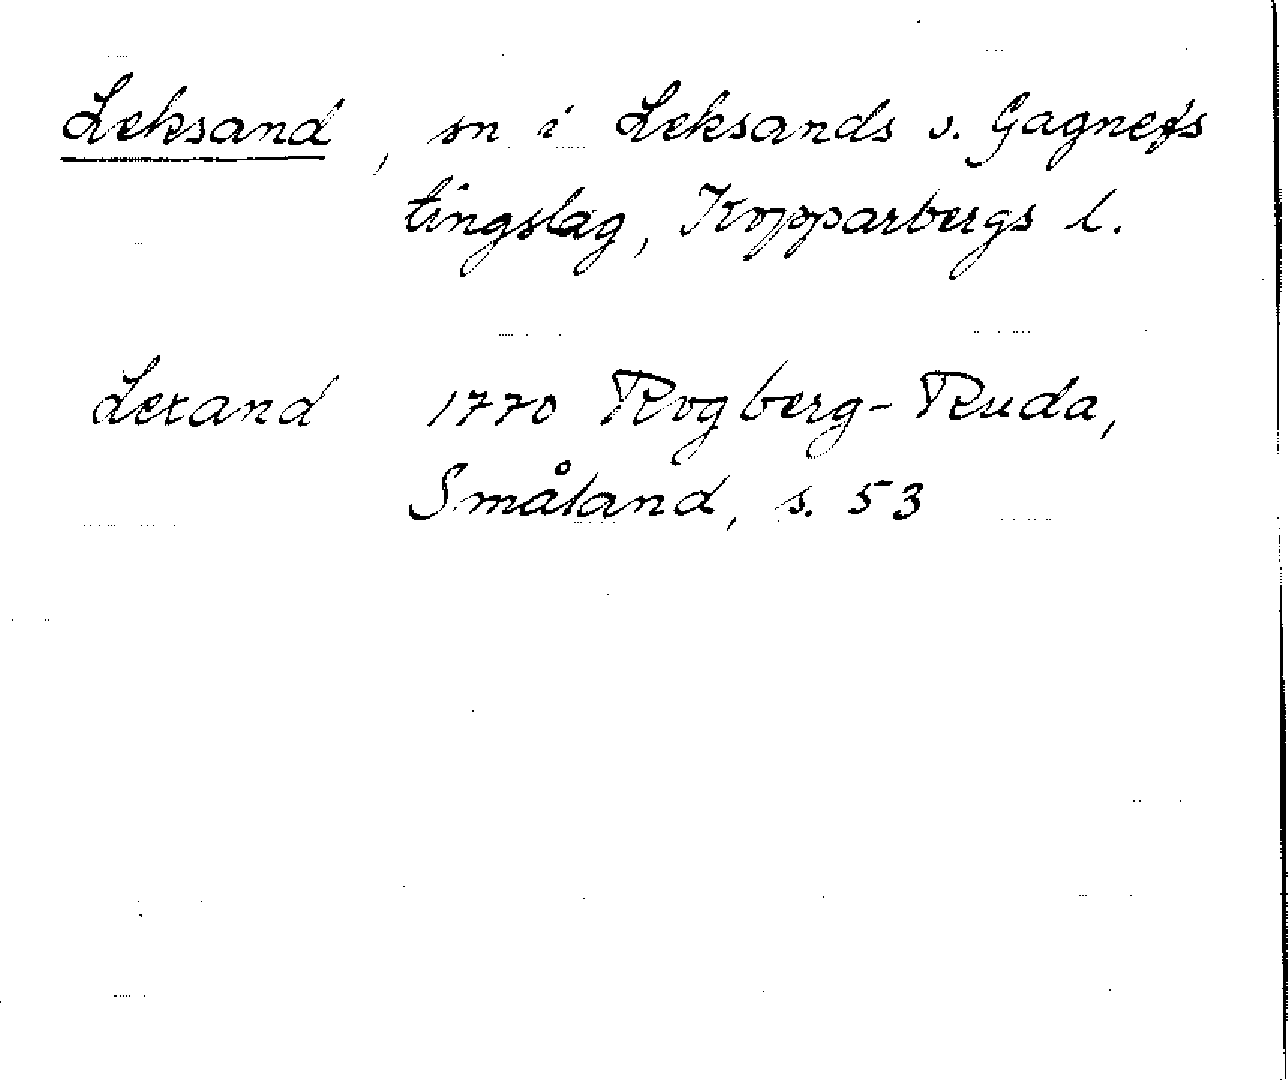 Leksand, sn i Leksands o. Gagnefs
tingslag, Kopparbergs l.
Lexand 1770 Rogberg-Ruda,
Småland, s. 53